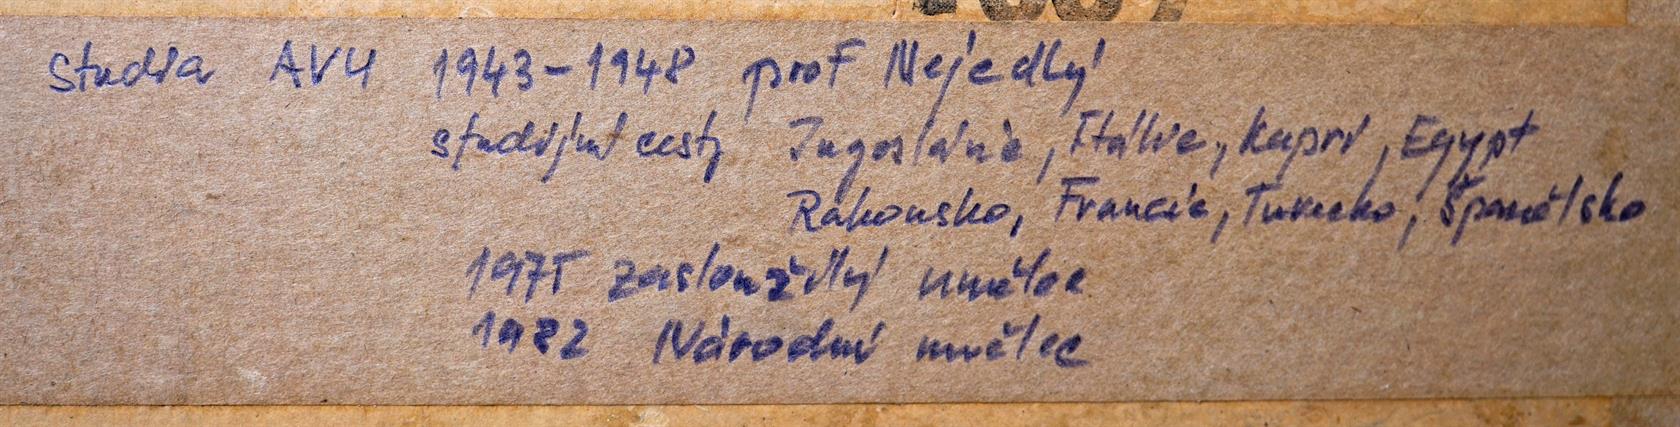 Studia AVU 1943-1948 prof Nejedlý
studijní cesty Jugoslávie, Itálie, Kapri, Egypt
Rakousko, Francie, Turecko, Španělsko
1975 zasloužilý umělec
1982 Národní umělec